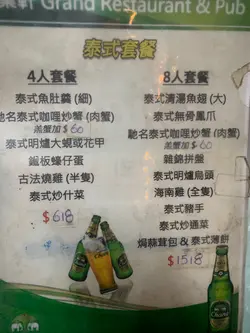 軒 Grand Restaurant & Pub
泰式套餐
4人套餐
泰式魚肚羹 (細)
馳名泰式咖喱炒蟹 (肉蟹)
羔蟹加$60
泰式明爐大蜆或花甲
鐵板蠔仔蛋
古法燒雞 (半隻)
泰式炒什菜
$618
8人套餐
泰式清湯魚翅 (大)
泰式無骨鳳爪
馳名泰式咖喱炒蟹 (肉蟹)
羔蟹加$60
雜錦拼盤
泰式明爐烏頭
海南雞 (全隻)
泰式豬手
泰式炒通菜
焗蒜茸包 & 泰式薄餅
$1518
Chang